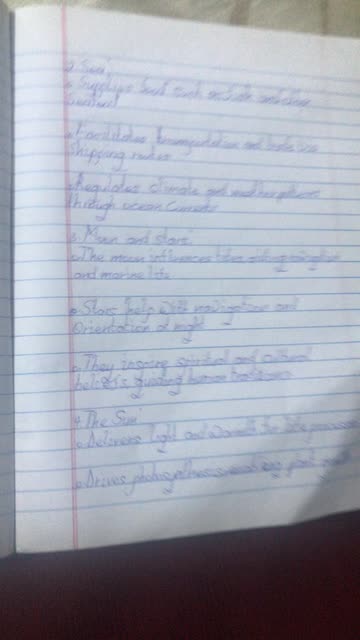 2. Sea:
o Supplies food such as fish and other
Seafood
o Facilitates transportation and trade via
Shipping routes
o Regulates climate and weather patterns
through ocean currents
3. Moon and stars:
o The moon influences tides, aiding navigation
and marine life
o Stars help with navigation and
Orientation at night
o They inspire spiritual and cultural
beliefs, guiding human traditions
4. The Sun:
o Delivers light and warmth for life processes
o Drives photosynthesis, enabling plant growth